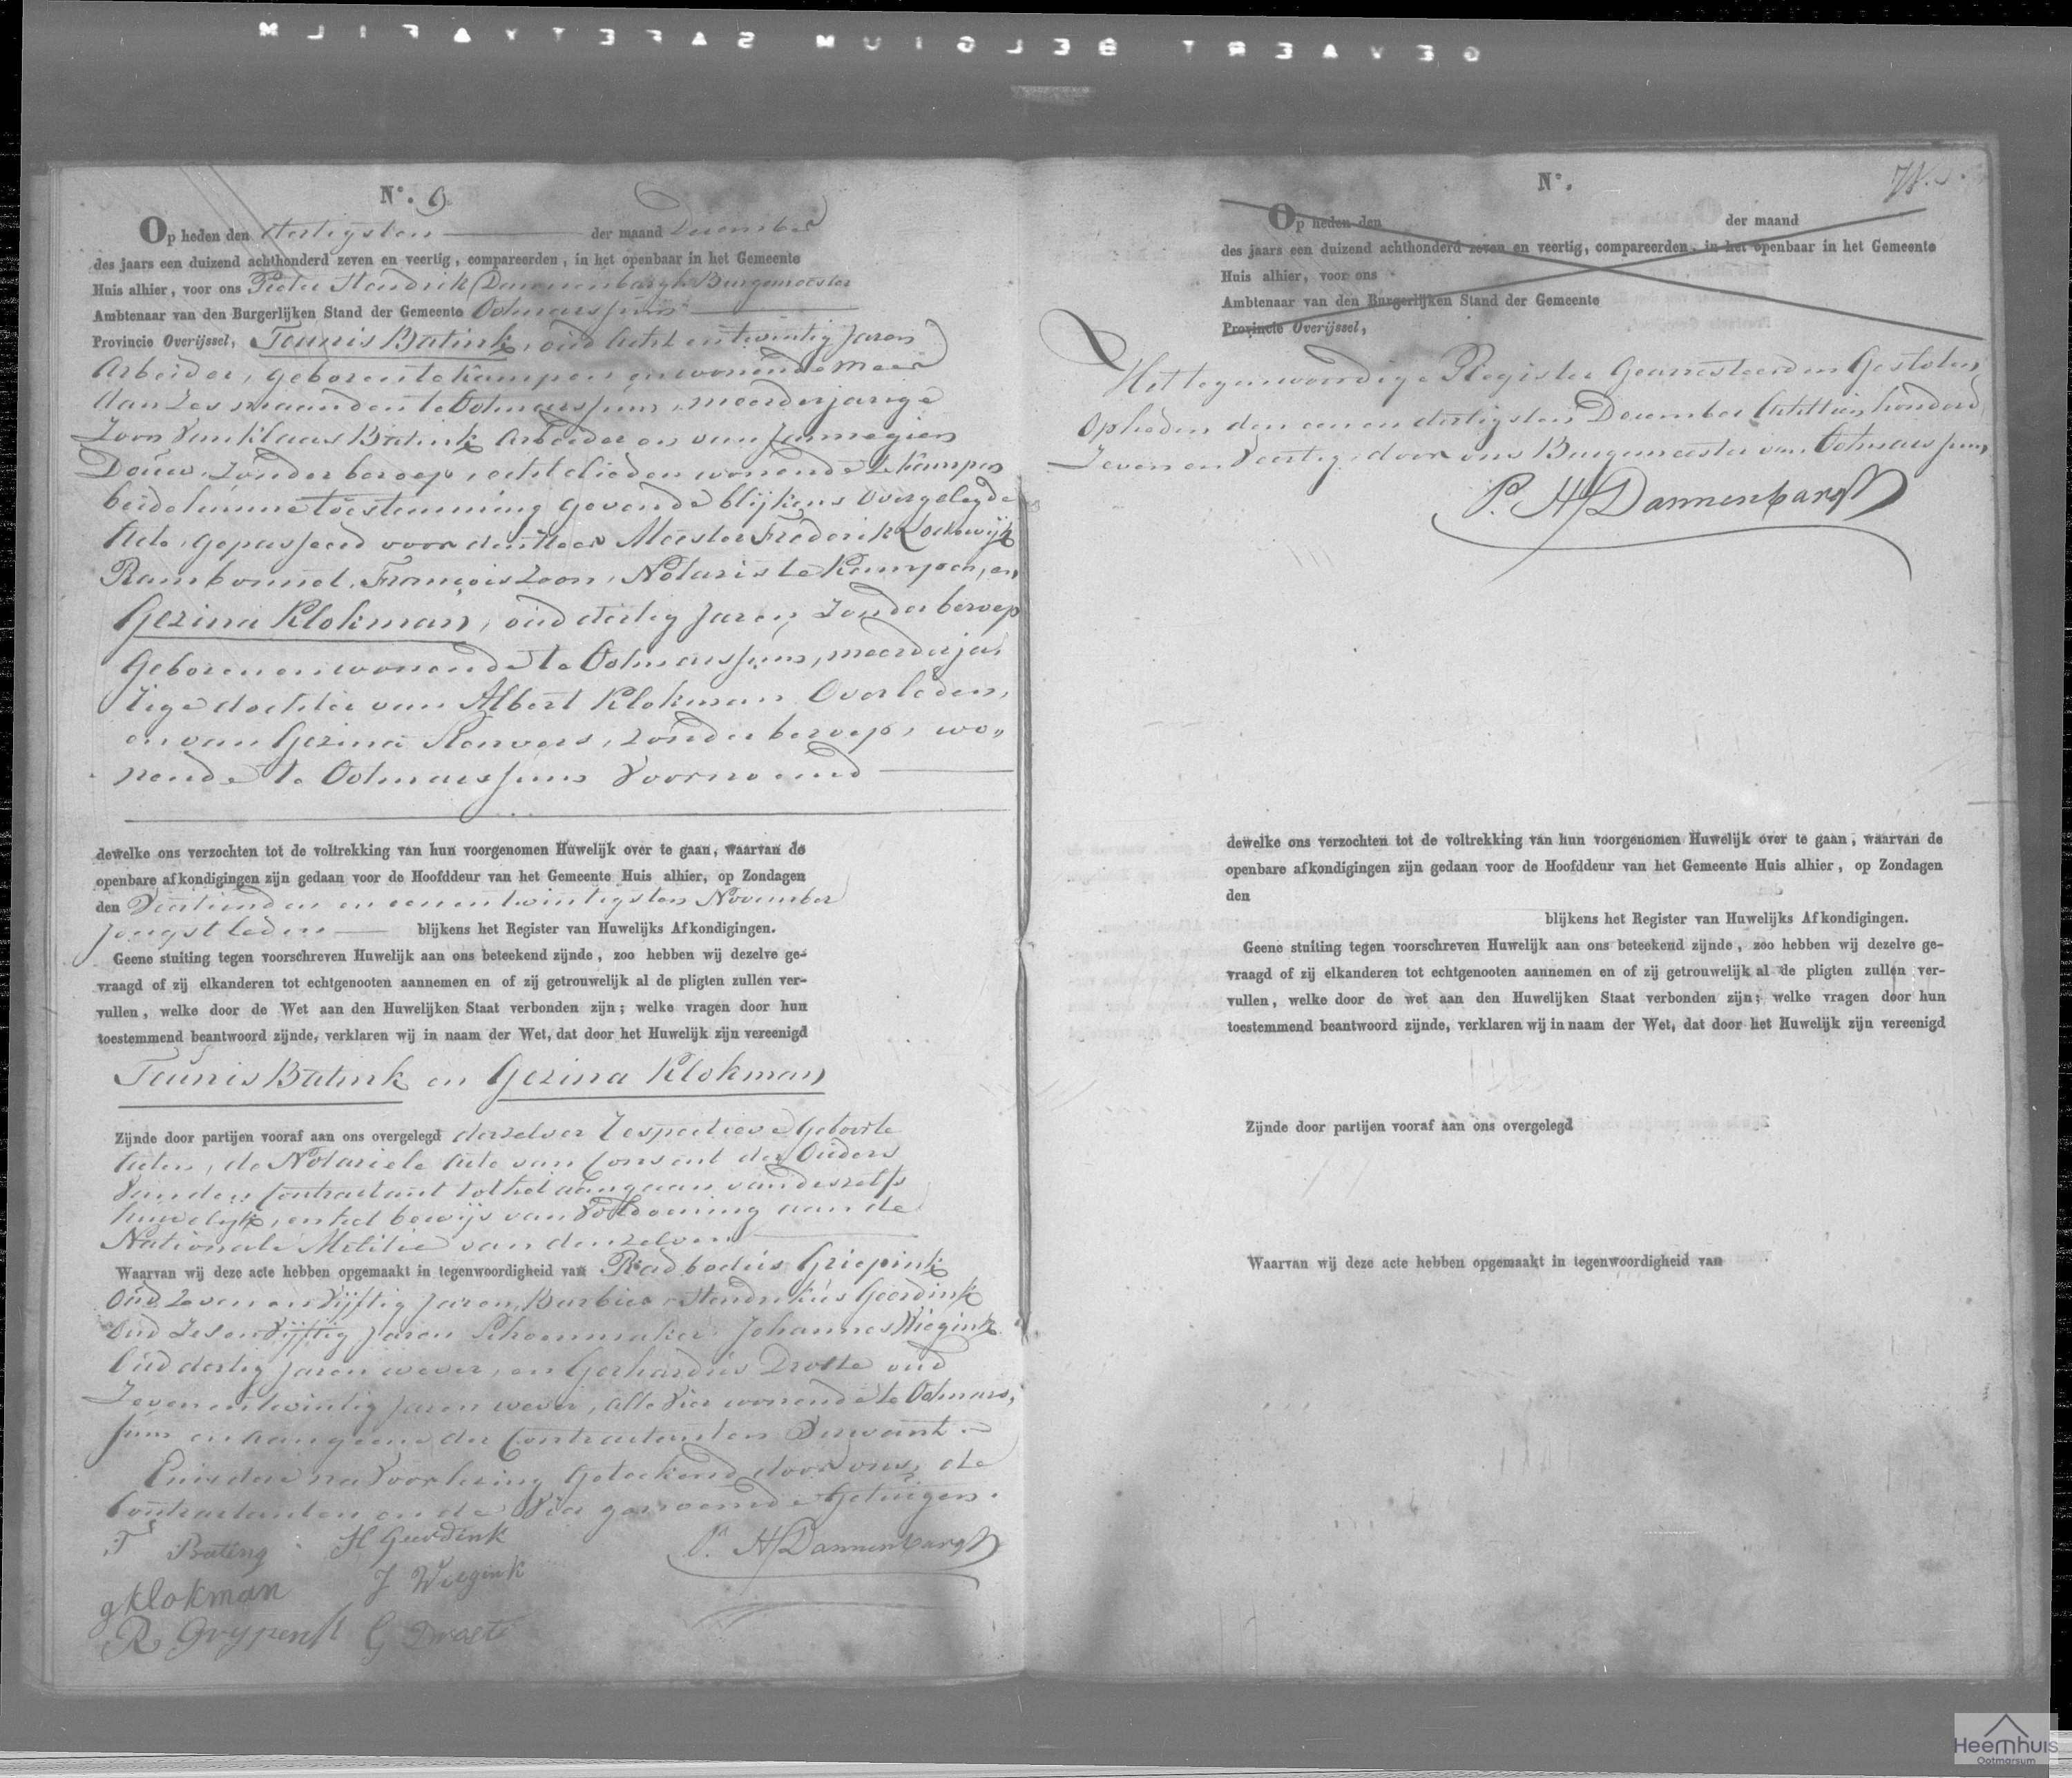 GEVAERT BELGIUM SAFETY FILM
N°. 9
Op heden den dertigsten der maand December
des jaars een duizend achthonderd zeven en veertig, compareerden, in het openbaar in het Gemeente
Huis alhier, voor ons Pieter Hendrik Dannenbargh Burgemeester
Ambtenaar van den Burgerlijken Stand der Gemeente Ootmarssum
Provincie Overijssel, Teunis Batink, oud acht en twintig Jaren
Arbeider, geboren te Kampen en wonende meer
dan zes maanden te Ootmarssum, meerderjarige
Zoon van Klaas Batink Arbeider en van Jannegien
Douw, Zonder beroep, echtelieden wonende te Kampen
beide hunne toestemming gevende blijkens overgelegde
Acte, gepasseerd voor den Heer Meester Frederik Lodewijk
Rambonnet, Françoiszoon, Notaris te Kampen, en
Gezina Klokman, oud dertig Jaren, Zonder beroep
Geboren en wonende te Ootmarssum, meerderja-
rige dochter van Albert Klokman Overleden,
en van Gezina Renvers, zonder beroep, wo-
nende te Ootmarssum Voornoemd
dewelke ons verzochten tot de voltrekking van hun voorgenomen Huwelijk over te gaan, waarvan de
openbare afkondigingen zijn gedaan voor de Hoofddeur van het Gemeente Huis alhier, op Zondagen
den Veertienden en een en twintigsten November
jongstleden blijkens het Register van Huwelijks Afkondigingen.
Geene stuiting tegen voorschreven Huwelijk aan ons beteekend zijnde, zoo hebben wij dezelve ge-
vraagd of zij elkanderen tot echtgenooten aannemen en of zij getrouwelijk al de pligten zullen ver-
vullen, welke door de Wet aan den Huwelijken Staat verbonden zijn; welke vragen door hun
toestemmend beantwoord zijnde, verklaren wij in naam der Wet, dat door het Huwelijk zijn vereenigd
Teunis Batink en Gezina Klokman
Zijnde door partijen vooraf aan ons overgelegd derzelver respectieve Geboorte
Acten, de Notariele Acte van Consent der Ouders
van den Contractant tot het aangaan van deszelfs
huwelijk, en het bewijs van Voldoening aan de
Nationale Militie van denzelven
Waarvan wij deze acte hebben opgemaakt in tegenwoordigheid van Radbodus Griepink
Oud Zeven en Vijftig Jaren, Barbier, Hendrikus Geerdink
Oud Zes en Vijftig Jaren Schoenmaker, Johannes Wiegink
Oud dertig Jaren wever, en Gerhardus Droste oud
Zeven en twintig Jaren wever, alle Vier wonende te Ootmars-
sum en aan geene der Contractanten Verwant.
En is deze na Voorlezing Geteekend door ons, de
Contractanten en de Vier genoemde Getuigen.
T Bating H Geerdink P. H Dannenbargh
g Klokman J Wiegink
R Grypenk G Droste
N°.
Op heden den der maand
des jaars een duizend achthonderd zeven en veertig, compareerden, in het openbaar in het Gemeente
Huis alhier, voor ons
Ambtenaar van den Burgerlijken Stand der Gemeente
Provincie Overijssel,
Het tegenwoordige Register Gearresteerd en Gesloten
Op heden den een en dertigsten December Achttienhonderd
Zeven en Veertig, door ons Burgemeester van Ootmarssum
P. H Dannenbargh
dewelke ons verzochten tot de voltrekking van hun voorgenomen Huwelijk over te gaan, waarvan de
openbare afkondigingen zijn gedaan voor de Hoofddeur van het Gemeente Huis alhier, op Zondagen
den
blijkens het Register van Huwelijks Afkondigingen.
Geene stuiting tegen voorschreven Huwelijk aan ons beteekend zijnde, zoo hebben wij dezelve ge-
vraagd of zij elkanderen tot echtgenooten aannemen en of zij getrouwelijk al de pligten zullen ver-
vullen, welke door de wet aan den Huwelijken Staat verbonden zijn; welke vragen door hun
toestemmend beantwoord zijnde, verklaren wij in naam der Wet, dat door het Huwelijk zijn vereenigd
Zijnde door partijen vooraf aan ons overgelegd
Waarvan wij deze acte hebben opgemaakt in tegenwoordigheid van
Heemhuis
Ootmarsum